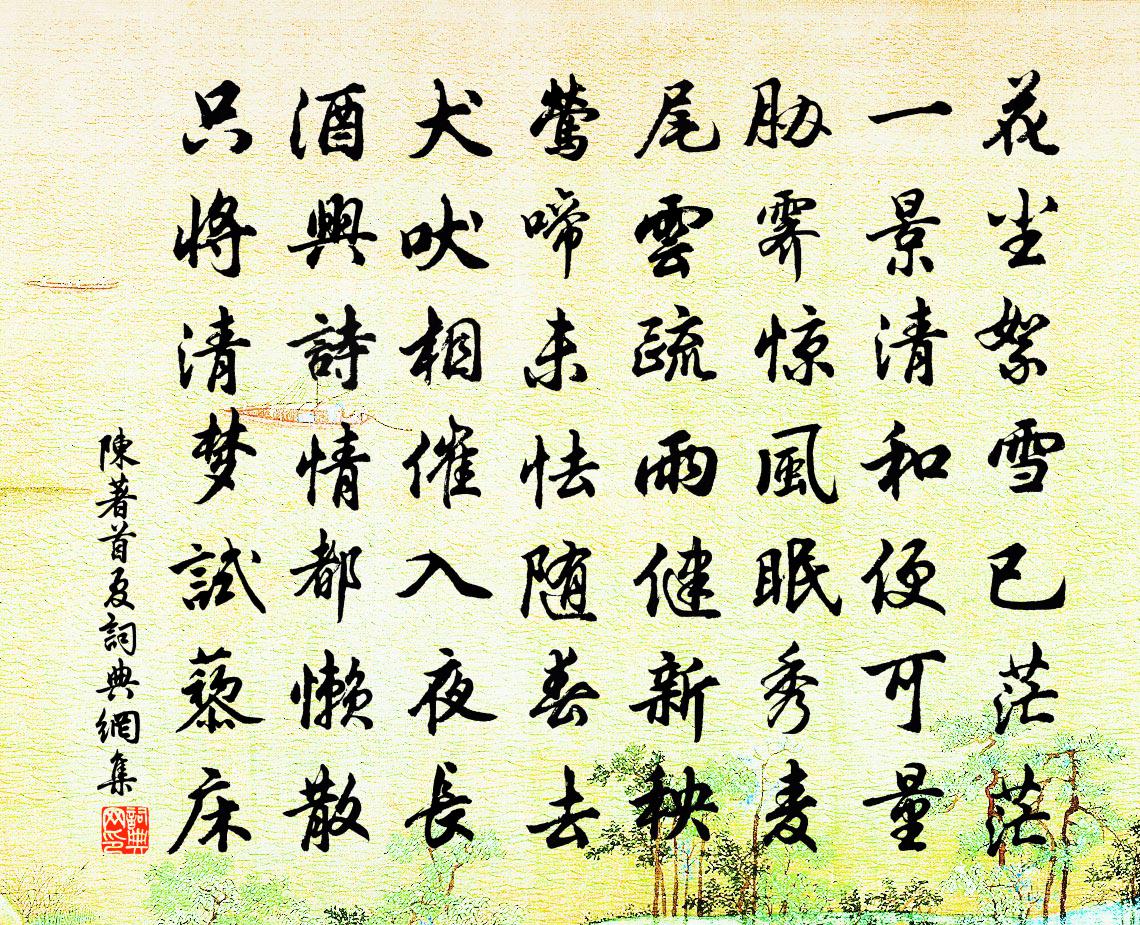 花尘絮雪已茫茫
一景清和便可量
胁霁惊風眠秀麦
尾雲疏雨健新秧
莺啼未怯随春去
犬吠相催入夜長
酒興詩情都懒散
只将清梦試藜床
陳著首夏詞典網集
詞典网印